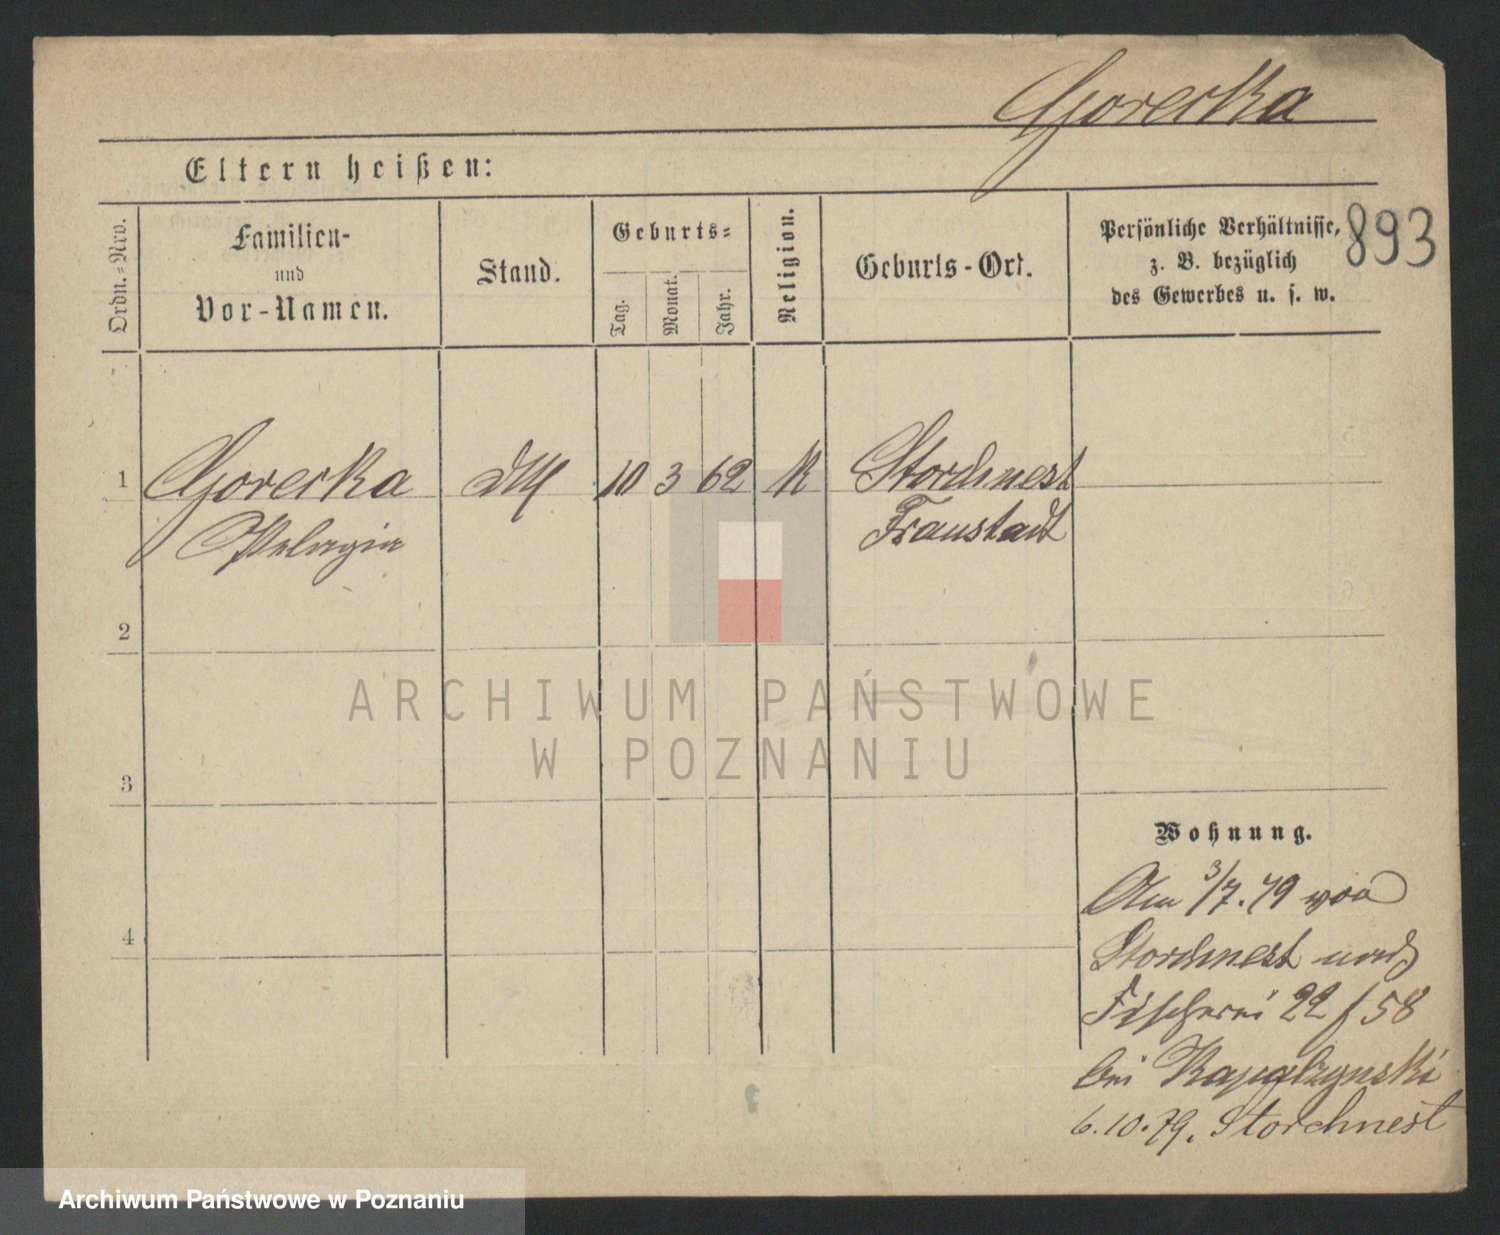 Gorecka
Eltern heißen:
Ordn.=Nro.
Familien-
und
Vor-Namen.
Stand.
Geburts=
Tag.
Monat.
Jahr.
Religion.
Geburts-Ort.
Persönliche Verhältnisse,
z. B. bezüglich
des Gewerbes u. s. w.
893
1 Gorecka 10 3 62 K Storchnest
Pelagia Fraustadt
2
3
4
ARCHIWUM PAŃSTWOWE
W POZNANIU
Wohnung.
Am 3/7.79 von
Storchnest nach
Fischerei 22 f 58
bei
6.10.79. Storchnest
Archiwum Państwowe w Poznaniu